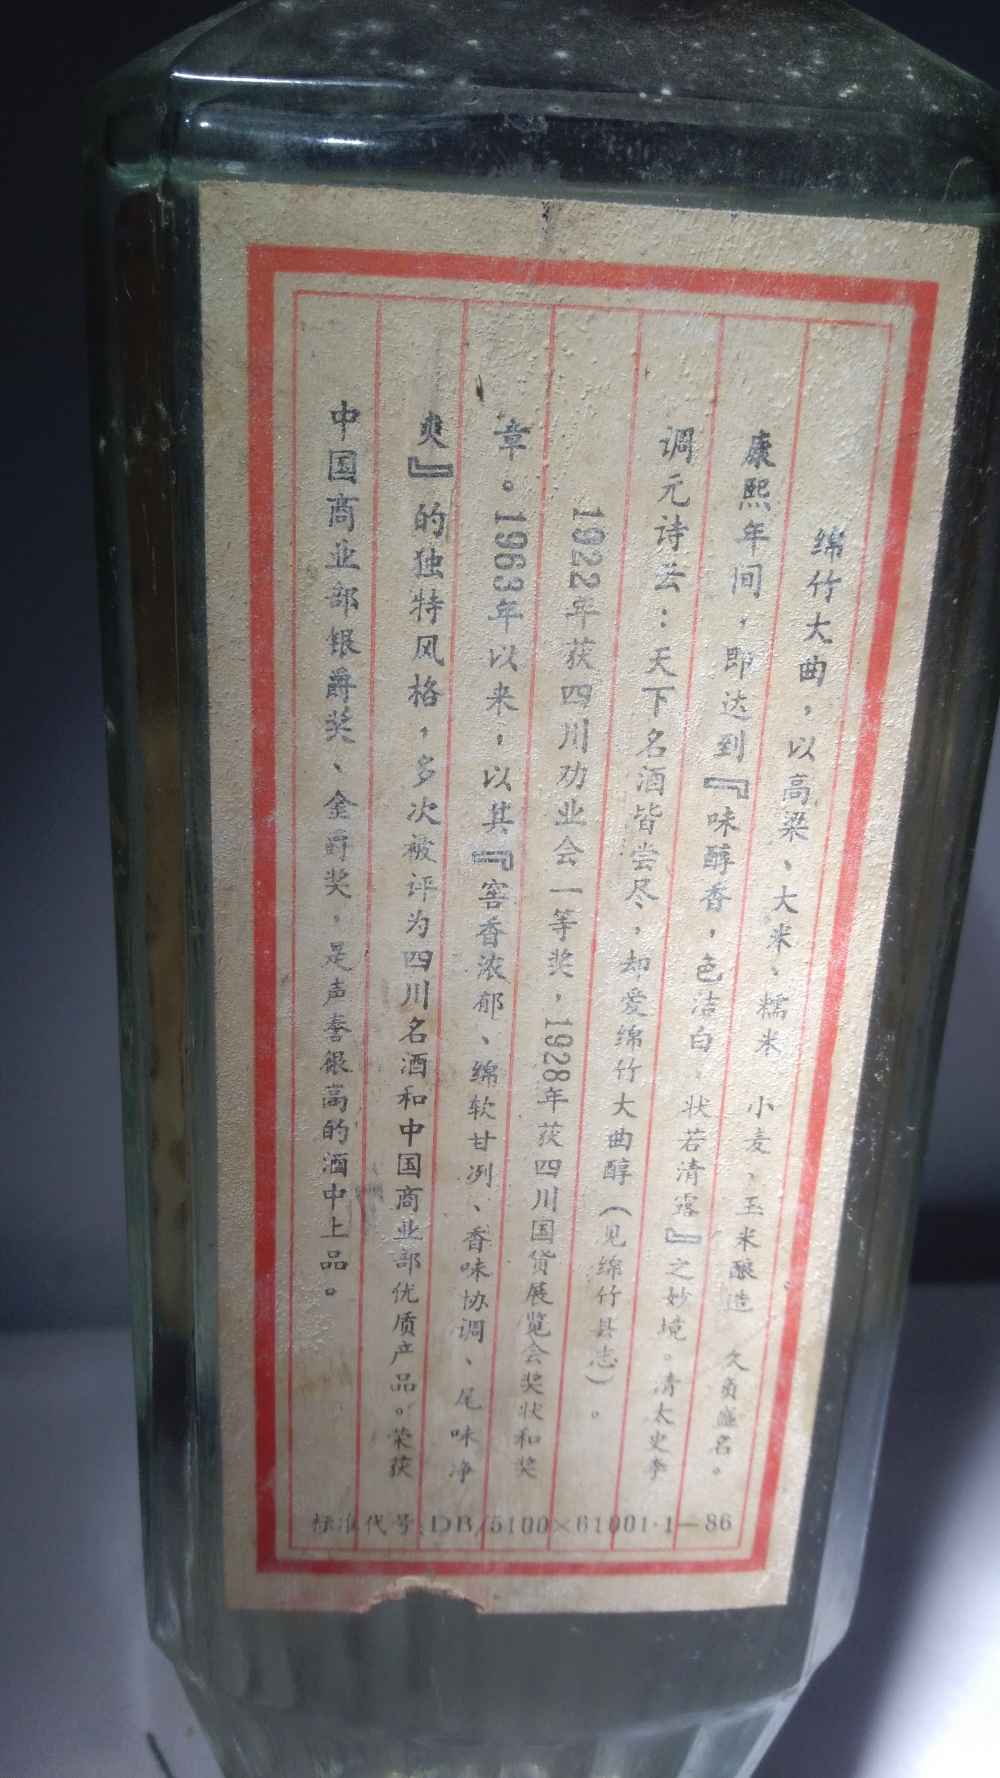 绵竹大曲，以高粱、大米、糯米、小麦、玉米酿造，久负盛名。
康熙年间，即达到『味醇香，色洁白，状若清露』之妙境。清太史李
调元诗云：天下名酒皆尝尽，却爱绵竹大曲醇（见绵竹县志）。
1922年获四川劝业会一等奖，1928年获四川国货展览会奖状和奖
章。1963年以来，以其『窖香浓郁、绵软甘冽、香味协调、尾味净
爽』的独特风格，多次被评为四川名酒和中国商业部优质产品。荣获
中国商业部银爵奖、金爵奖，是声誉很高的酒中上品。
标准代号 DB/5100×61001·1—86